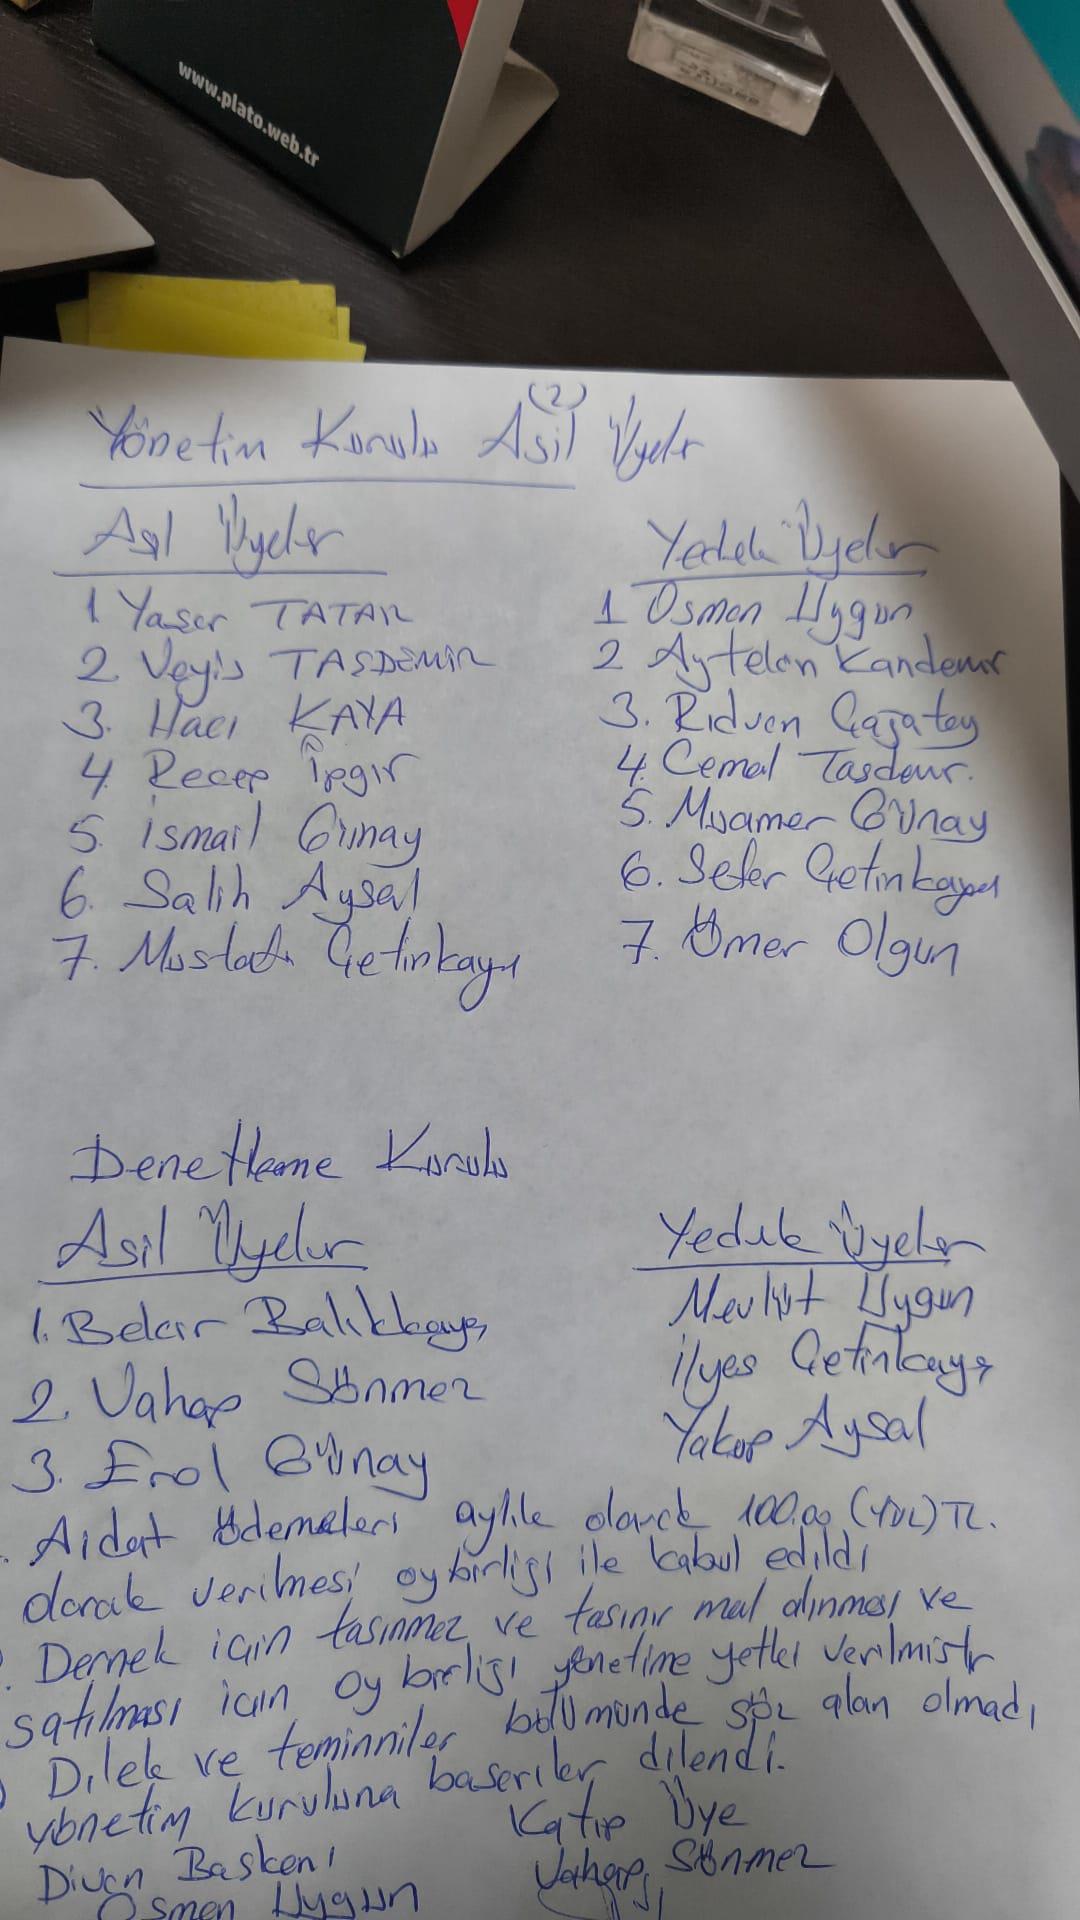 www.plato.web.tr
(2)
Yönetim Kurulu Asil Üyeler
Asıl Üyeler
1 Yaşar TATAR
2. Veyis TAŞDEMİR
3. Hacı KAYA
4. Recep İpgir
5. İsmail Günay
6. Salih Aysal
7. Mustafa Çetinkaya
Yedek Üyeler
1 Osman Uygun
2 Aytekin Kandemir
3. Rıdvan Çağatay
4. Cemal Taşdemir.
5. Muamer Günay
6. Sefer Çetinkaya
7. Ömer Olgun
Denetleme Kurulu
Asil Üyeler
1. Bekir Balıkkaya
2. Vahap Sönmez
3. Erol Günay
Yedek Üyeler
Mevlüt Uygun
İlyas Çetinkaya
Yakup Aysal
Aidat ödemeleri aylık olarak 100.00 (YÜZ) TL.
olarak verilmesi oybirliği ile kabul edildi
Dernek için taşınmaz ve taşınır mal alınması ve
satılması için oy birliği yönetime yetki verilmiştir
Dilek ve teminniler bölümünde söz alan olmadı
yönetim kuruluna başarılar dilendi.
Divan Başkanı
Osman Uygun
Katip Üye
Vahap Sönmez